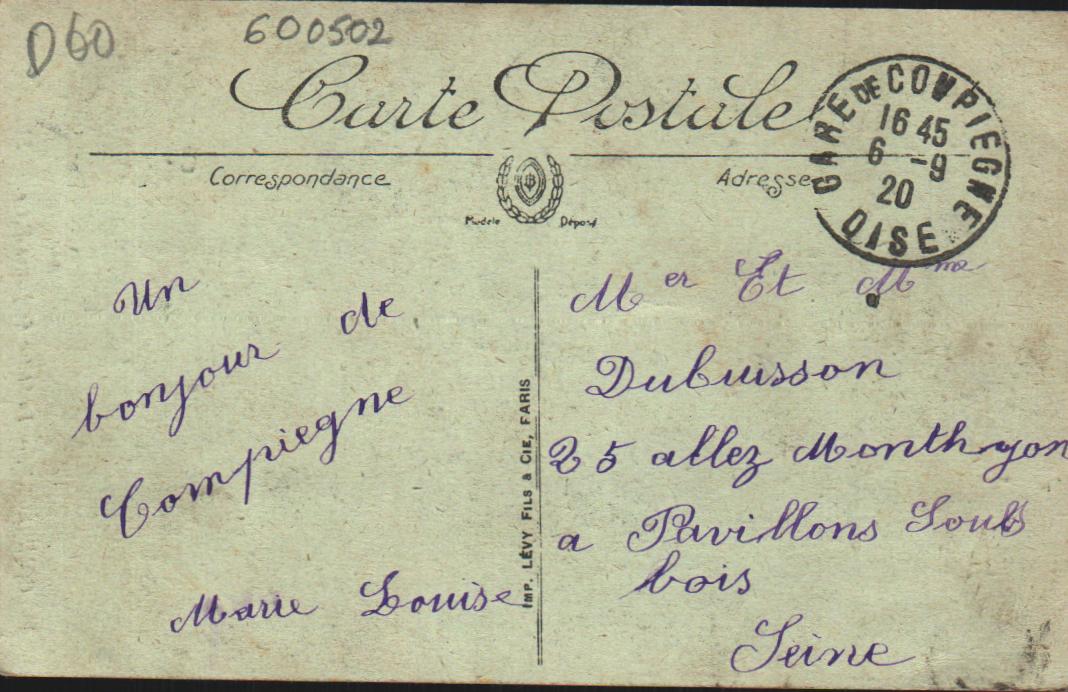 D60
600502
Carte Postale
Correspondance
Adresse
Modèle Déposé
GARE DE COMPIEGNE
16 45
6 -9
20
OISE
Un
bonjour de
Compiegne
Marie Louise
IMP. LÉVY FILS & CIE, PARIS
Mer Et Mme
Dubuisson
25 allez Monthyon
a Pavillons Sous
bois
Seine